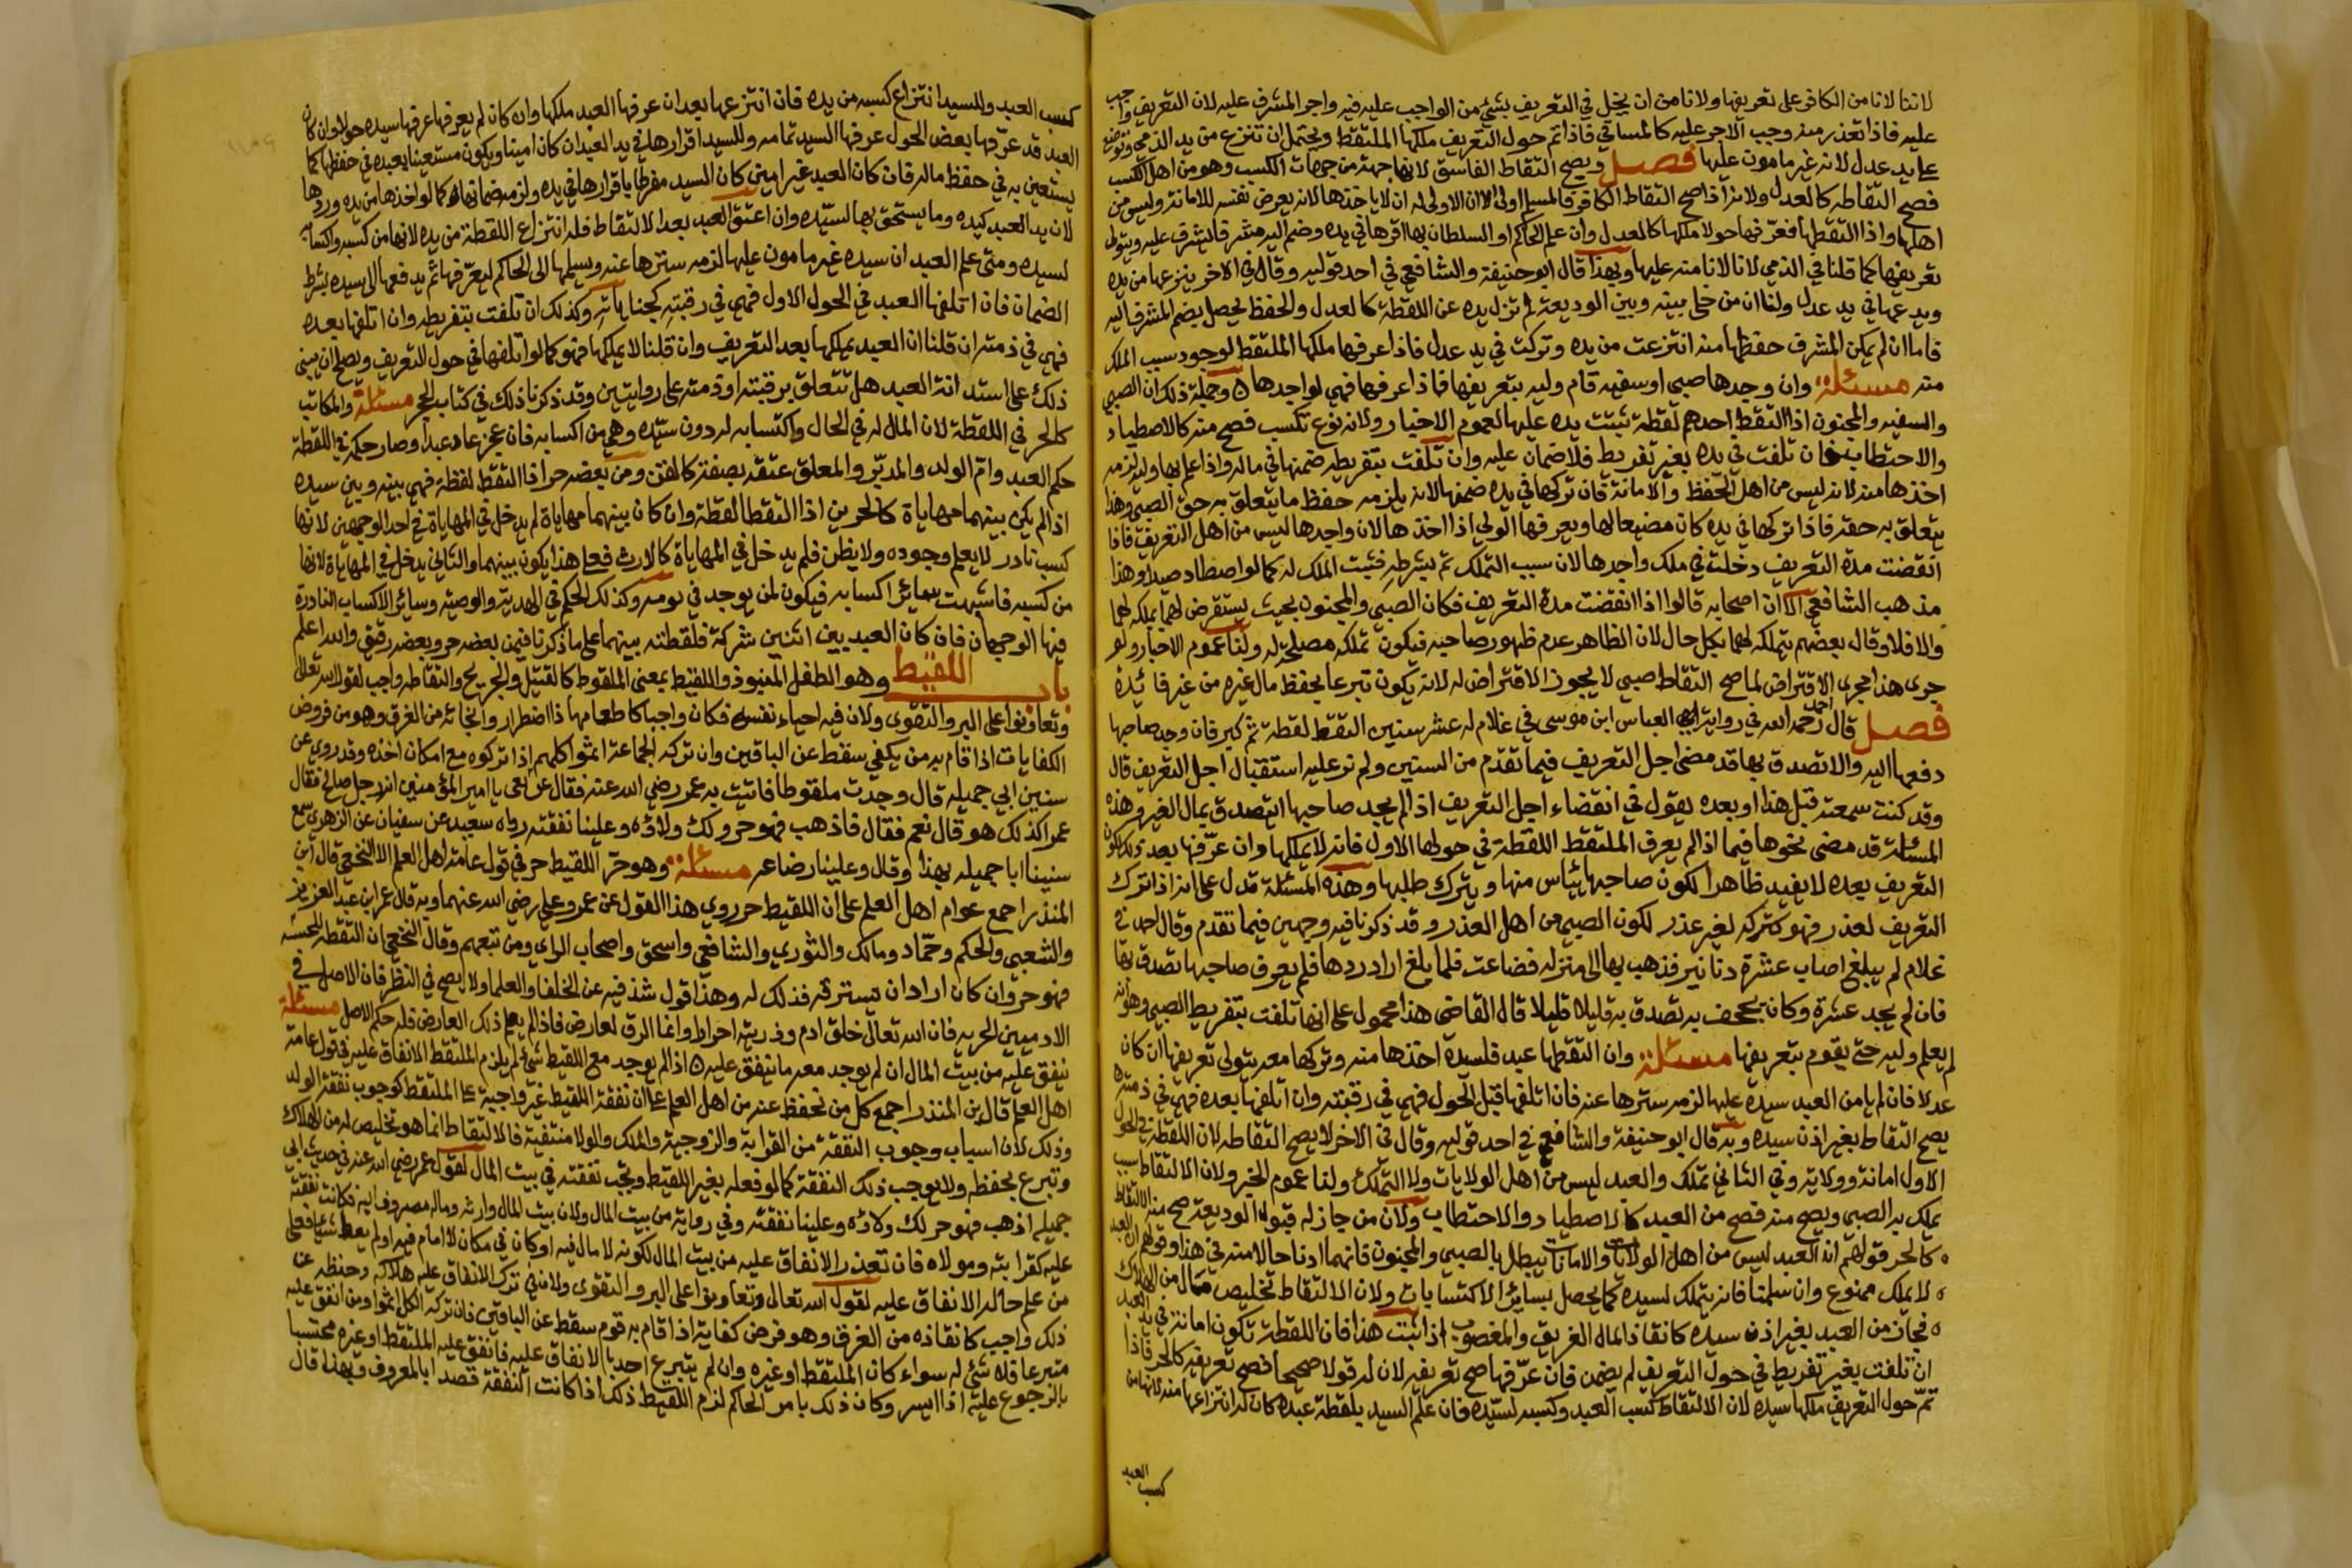 لاننا لا نامن الكافر على تعريفها ولا نامن ان يخل في التعريف بشئ من الواجب عليه فيه واجر المشرف عليه لان التعريف واجب
عليه فاذا تعذر منه وجب الاجر عليه كالمساقي فاذا تم حول التعريف ملكها الملتقط ويحتمل ان تنزع من يد الذمي وتوضع
على يد عدل لانه غير مامون عليها فصل ويصح التقاط الفاسق لانها جهة من جهات الكسب وهو من اهل الكسب
فصح التقاطه كالعدل ولانه اذا صح التقاط الكافر فالمسلم اولى الا ان الاولى له ان لا ياخذها لانه يعرض نفسه للامانة وليس من
اهلها واذا التقطها فعرفها حولا ملكها كالعدل وان علم الحاكم او السلطان بها اقرها في يده وضم اليه مشرفا يشرف عليه ويتولى
تعريفها كما قلنا في الذمي لانا لا نامنه عليها وبهذا قال ابو حنيفة والشافعي في احد قوليه وقال في الاخر ينزعها من يده
ويدعها في يد عدل ولنا ان من خلي بينه وبين الوديعة لم تزل يده عن اللقطة كالعدل والحفظ يحصل بضم المشرف اليه
فاما ان لم يمكن المشرف حفظها منه انتزعت من يده وتركت في يد عدل فاذا عرفها ملكها الملتقط لوجود سبب الملك
منه مسئلة وان وجدها صبي او سفيه قام وليه بتعريفها فاذا عرفها فهي لواجدها وجملة ذلك ان الصبي
والسفيه والمجنون اذا التقط احدهم لقطة ثبتت يده عليها لعموم الاخبار ولانه نوع تكسب فصح منه كالاصطياد
والاحتطاب فان تلفت في يده بغير تفريط فلا ضمان عليه وان تلفت بتفريطه ضمنها في ماله واذا علم بها وليه لزمه
اخذها منه لانه ليس من اهل الحفظ والامانة فان تركها في يده ضمنها لانه يلزمه حفظ ما يتعلق به حق الصبي وهذا
يتعلق به حقه فاذا تركها في يده كان مضيعا لها ويعرفها الولي اذا اخذها لان واجدها ليس من اهل التعريف فاذا
انقضت مدة التعريف دخلت في ملك واجدها لان سبب التملك تم بشرطه فثبت الملك له كما لو اصطاد صيدا وهذا
مذهب الشافعي الا ان اصحابه قالوا اذا انقضت مدة التعريف فكان الصبي والمجنون بحيث يستقرض لهما يملكه لهما
والا فلا وقال بعضهم يتملكه لهما بكل حال لان الظاهر عدم ظهور صاحبه فيكون تملكه مصلحة له ولنا عموم الاخبار ولو
جرى هذا مجرى الاقتراض لما صح التقاط صبي لا يجوز الاقتراض له لانه يكون تبرعا بحفظ مال غيره من غير فائدة
فصل قال احمد رحمه الله في رواية العباس ابن موسى في غلام له عشر سنين التقط لقطة ثم كبر فان وجد صاحبها
دفعها اليه والا تصدق بها قد مضى اجل التعريف فيما تقدم من السنين ولم نر عليه استقبال اجل التعريف قال
وقد كنت سمعته قبل هذا او بعده يقول في انقضاء اجل التعريف اذا لم يجد صاحبها ايتصدق بمال الغير وهذه
المسئلة قد مضى نحوها فيما اذا لم يعرف الملتقط اللقطة في حولها الاول فانه لا يملكها وان عرفها بعد ذلك لكون
التعريف بعده لا يفيد ظاهرا لكون صاحبها يئاس منها ويترك طلبها وهذه المسئلة تدل على انه اذا ترك
التعريف لعذر فهو كتركه لغير عذر لكون الصبي من اهل العذر وقد ذكرنا فيه وجهين فيما تقدم وقال احمد في
غلام لم يبلغ اصاب عشرة دنانير فذهب بها الى منزله فضاعت فلما بلغ اراد ردها فلم يعرف صاحبها تصدق بها
فان لم يجد عشرة وكان يجحف به تصدق به قليلا قليلا قال القاضي هذا محمول على انها تلفت بتفريط الصبي وهو انه
لم يعلم وليه حتى يقوم بتعريفها مسئلة وان التقطها عبد فلسيده اخذها منه وتركها معه يتولى تعريفها ان كان
عدلا فان لم يامن العبد سيده عليها لزمه سترها عنه فان اتلفها قبل الحول فهي في رقبته وان اتلفها بعده فهي في ذمته
يصح التقاط بغير اذن سيده وبه قال ابو حنيفة والشافعي في احد قوليه وقال في الاخر لا يصح التقاطه لان اللقطة في الحول
الاول امانة وولاية وفي الثاني تملك والعبد ليس من اهل الولايات ولا التملك ولنا عموم الخبر ولان الالتقاط سبب
يملك به الصبي ويصح منه فصح من العبد كالاصطياد والاحتطاب ولان من جاز له قبول الوديعة صح منه الالتقاط
كالحر قولهم ان العبد ليس من اهل الولايات والامانات يبطل بالصبي والمجنون فانهما ادنا حالا منه في هذا وقولهم ان العبد
لا يملك ممنوع وان سلمنا فانه يتملك لسيده كما يحصل بسائر الاكتسابات ولان الالتقاط تخليص مال من الهلاك
فجاز من العبد بغير اذن سيده كانقاذ المال الغريق والمغصوب اذا ثبت هذا فان اللقطة تكون امانة في يد العبد
ان تلفت بغير تفريط في حول التعريف لم يضمن فان عرفها صح تعريفه لان له قولا صحيحا فصح تعريفه كالحر فاذا
تم حول التعريف ملكها سيده لان الالتقاط كسب العبد وكسبه لسيده فان علم السيد بلقطة عبده كان له انتزاعها منه لانها من
كسب العبد
كسب العبد وللسيد انتزاع كسبه من يده فان انتزعها بعد ان عرفها العبد ملكها وان كان لم يعرفها عرفها سيده حولا وان كان
العبد قد عرفها بعض الحول عرفها السيد تمامه وللسيد اقرارها في يد العبد ان كان امينا ويكون مستعينا بعبده في حفظها كما
يستعين به في حفظ ماله فان كان العبد غير امين كان السيد مفرطا باقرارها في يده ولزمه ضمانها كما لو اخذها من يده وردها
لان يد العبد كيده وما يستحق بها لسيده وان اعتق العبد بعد الالتقاط فله انتزاع اللقطة من يده لانها من كسبه واكتسابه
لسيده ومتى علم العبد ان سيده غير مامون عليها لزمه سترها عنه ويسلمها الى الحاكم ليعرفها ثم يدفعها الى سيده بشرط
الضمان فان اتلفها العبد في الحول الاول فهي في رقبته كجناياته وكذلك ان تلفت بتفريطه وان اتلفها بعده
فهي في ذمته ان قلنا ان العبد يملكها بعد التعريف وان قلنا لا يملكها فهو كما لو اتلفها في حول التعريف ويصلح ان يبنى
ذلك على استدانة العبد هل تتعلق برقبته او ذمته على روايتين وقد ذكرنا ذلك في كتاب الحجر مسئلة والمكاتب
كالحر في اللقطة لان المال له في الحال واكتسابه له دون سيده وهي من اكسابه فان عجز عاد عبدا وصار حكمه في اللقطة
حكم العبد وام الولد والمدبر والمعلق عتقه بصفة كالقن ومن بعضه حر اذا التقط لقطة فهي بينه وبين سيده
اذا لم يكن بينهما مهاياة كالحرين اذا التقطا لقطة وان كان بينهما مهاياة لم يدخل في المهاياة في احد الوجهين لانها
كسب نادر لا يعلم وجوده ولا يظن فلم يدخل في المهاياة كالارث فعلى هذا يكون بينهما والثاني يدخل في المهاياة لانها
من كسبه فاشبهت سائر اكسابه فيكون لمن يوجد في يومه وكذلك الحكم في الهدية والوصية وسائر الاكساب النادرة
فيها الوجهان فان كان العبد بين اثنين شركة فلقطته بينهما على ما ذكرنا فيمن بعضه حر وبعضه رقيق والله اعلم
باب اللقيط وهو الطفل المنبوذ واللقيط بمعنى الملقوط كالقتيل والجريح والتقاطه واجب لقول الله تعالى
وتعاونوا على البر والتقوى ولان فيه احياء نفسه فكان واجبا كاطعامها اذا اضطر وانجائه من الغرق وهو من فروض
الكفايات اذا قام به من يكفي سقط عن الباقين وان تركه الجماعة اثموا كلهم اذا تركوه مع امكان اخذه وقد روي عن
سنين ابي جميله قال وجدت ملقوطا فاتيت به عمر رضي الله عنه فقال عريفي يا امير المؤمنين انه رجل صالح فقال
عمر اكذلك هو قال نعم فقال فاذهب فهو حر ولك ولاؤه وعلينا نفقته رواه سعيد عن سفيان عن الزهري سمع
سنينا ابا جميله بهذا وقال وعلينا رضاعه مسئلة وهو حر اللقيط حر في قول عامة اهل العلم الا النخعي قال ابن
المنذر اجمع عوام اهل العلم على ان اللقيط حر روي هذا القول عن عمر وعلي رضي الله عنهما وبه قال عمر ابن عبد العزيز
والشعبي والحكم وحماد ومالك والثوري والشافعي واسحق واصحاب الراي ومن تبعهم وقال النخعي ان التقطه للحسبة
فهو حر وان كان اراد ان يسترقه فذلك له وهذا قول شذ فيه عن الخلفا والعلما ولا يصح في النظر فان الاصل في
الادميين الحرية فان الله تعالى خلق ادم وذريته احرارا وانما الرق لعارض فاذا لم يعلم ذلك العارض فله حكم الاصل مسئلة
ينفق عليه من بيت المال ان لم يوجد معه ما ينفق عليه اذا لم يوجد مع اللقيط شئ لم يلزم الملتقط الانفاق عليه في قول عامة
اهل العلم قال بن المنذر اجمع كل من نحفظ عنه من اهل العلم على ان نفقة اللقيط غير واجبة على الملتقط كوجوب نفقة الولد
وذلك لان اسباب وجوب النفقة من القرابة والزوجية والملك والولا منتفية فالالتقاط انما هو تخليص له من الهلاك
وتبرع بحفظه ولا يوجب ذلك النفقة كما لو فعله بغير اللقيط ويجب نفقته في بيت المال لقول عمر رضي الله عنه في حديث ابي
جميله اذهب فهو حر لك ولاؤه وعلينا نفقته وفي رواية من بيت المال ولان بيت المال وارثه وماله مصروف اليه فكانت نفقته
عليه كقرابته ومولاه فان تعذر الانفاق عليه من بيت المال لكونه لا مال فيه او كان في مكان لا امام فيه او لم يعط شيا فعلى
من علم حاله الانفاق عليه لقول الله تعالى وتعاونوا على البر والتقوى ولان في ترك الانفاق عليه هلاكه وحفظه عن
ذلك واجب كانقاذه من الغرق وهو فرض كفاية اذا قام به قوم سقط عن الباقين فان تركه الكل اثموا ومن انفق عليه
متبرعا فلا شئ له سواء كان الملتقط او غيره وان لم يتبرع احد بالانفاق عليه فانفق عليه الملتقط او غيره محتسبا
بالرجوع عليه اذا ايسر وكان ذلك بامر الحاكم لزم اللقيط ذلك اذا كانت النفقة قصدا بالمعروف وبهذا قال